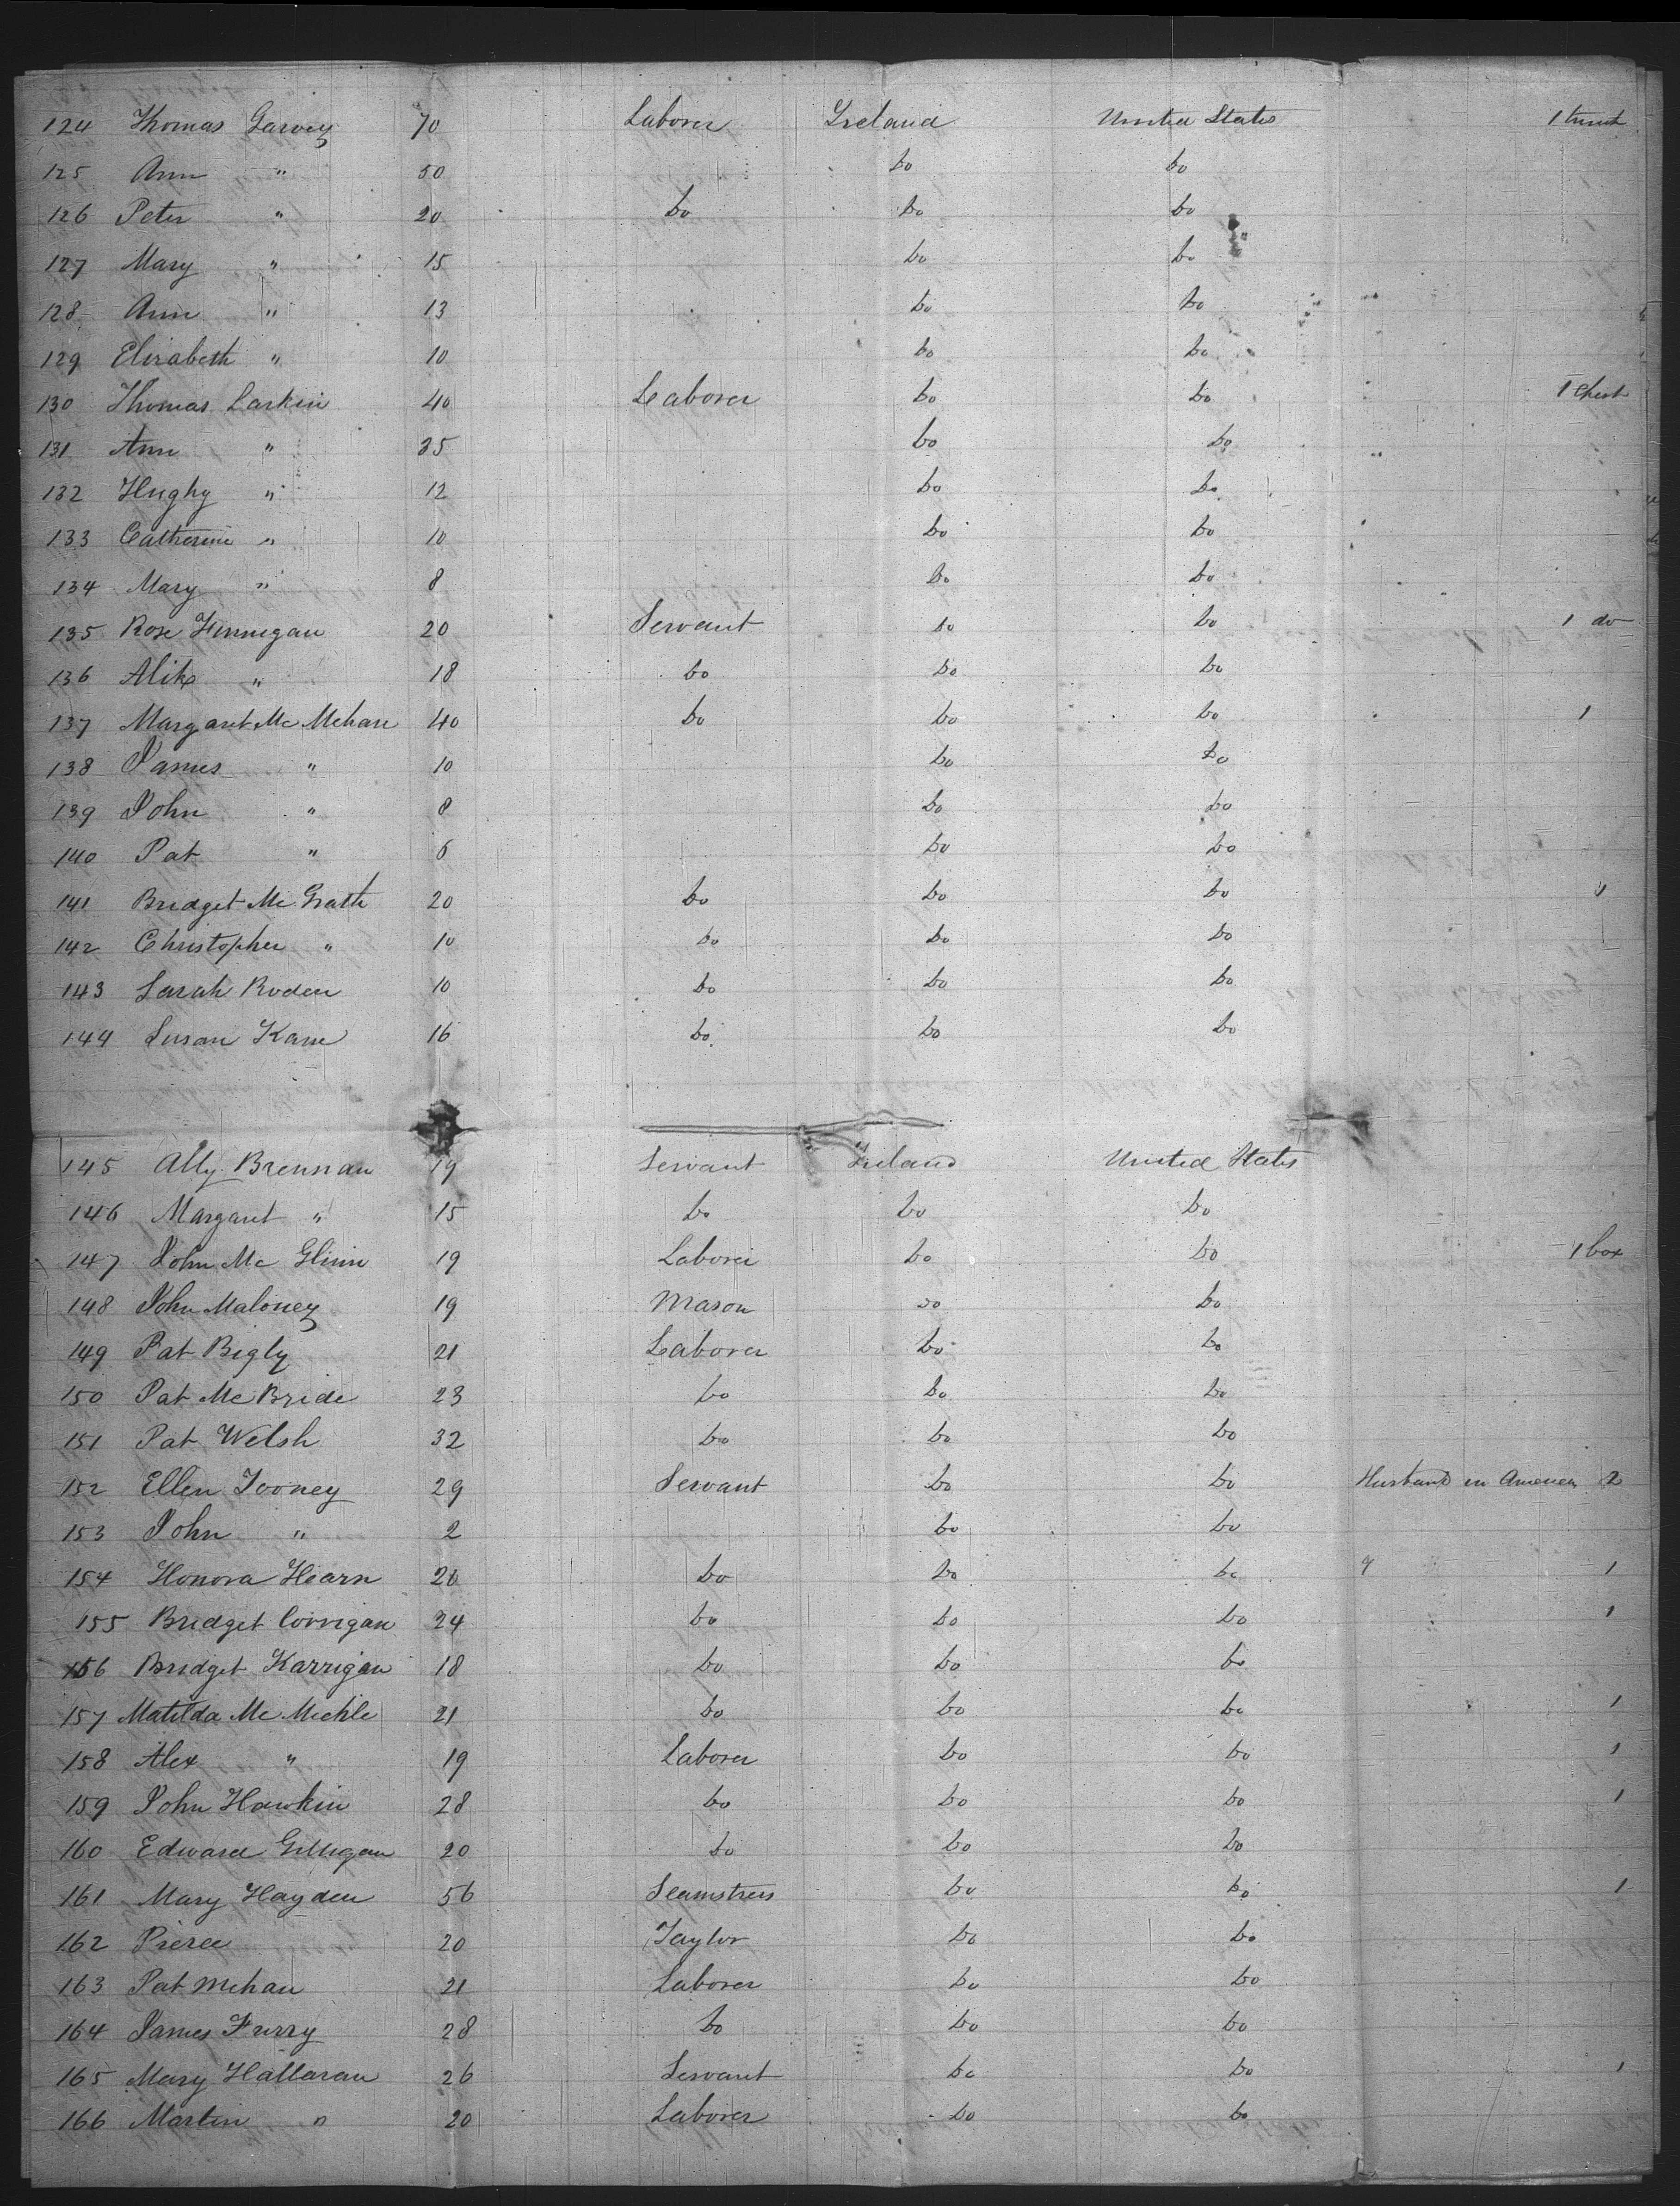 124 Thomas Garvey 70 Laborer Ireland United States 1 trunk
125 Ann " 50 Do Do
126 Peter " 20 Do Do Do
127 Mary " 15 Do Do
128 Ann " 13 Do Do
129 Elizabeth " 10 Do Do
130 Thomas Larkin 40 Laborer Do Do 1 Chest
131 Ann " 35 Do Do
132 Hughy " 12 Do Do
133 Catherine " 10 Do Do
134 Mary " 8 Do Do
135 Rose Finnegan 20 Servant Do Do 1 do
136 Alike " 18 Do Do Do
137 Margaret Mc Mehan 40 Do Do Do 1
138 James " 10 Do Do
139 John " 8 Do Do
140 Pat " 6 Do Do
141 Bridget Mc Grath 20 Do Do Do "
142 Christopher " 10 Do Do Do
143 Sarah Roden 10 Do Do Do
144 Susan Kane 16 Do Do Do
145 Ally Brennan 19 Servant Ireland United States
146 Margaret " 15 Do Do Do
147 John Mc Glinn 19 Laborer Do Do 1 box
148 John Maloney 19 Mason Do Do
149 Pat Bigly 21 Laborer Do Do
150 Pat Mc Bride 23 Do Do Do
151 Pat Welsh 32 Do Do Do
152 Ellen Tooney 29 Servant Do Do Husband in America 2
153 John " 2 Do Do
154 Honora Hearn 20 Do Do Do 1
155 Bridget Corrigan 24 Do Do Do 1
156 Bridget Karrigan 18 Do Do Do
157 Matilda Mc Michle 21 Do Do Do 1
158 Alex " 19 Laborer Do Do 1
159 John Hawkin 28 Do Do Do 1
160 Edward Gilligan 20 Do Do Do
161 Mary Hayden 56 Seamstress Do Do 1
162 Pierce 20 Taylor Do Do
163 Pat Mehan 21 Laborer Do Do
164 James Furry 28 Do Do Do
165 Mary Hallaran 26 Servant Do Do 1
166 Martin " 20 Laborer Do Do